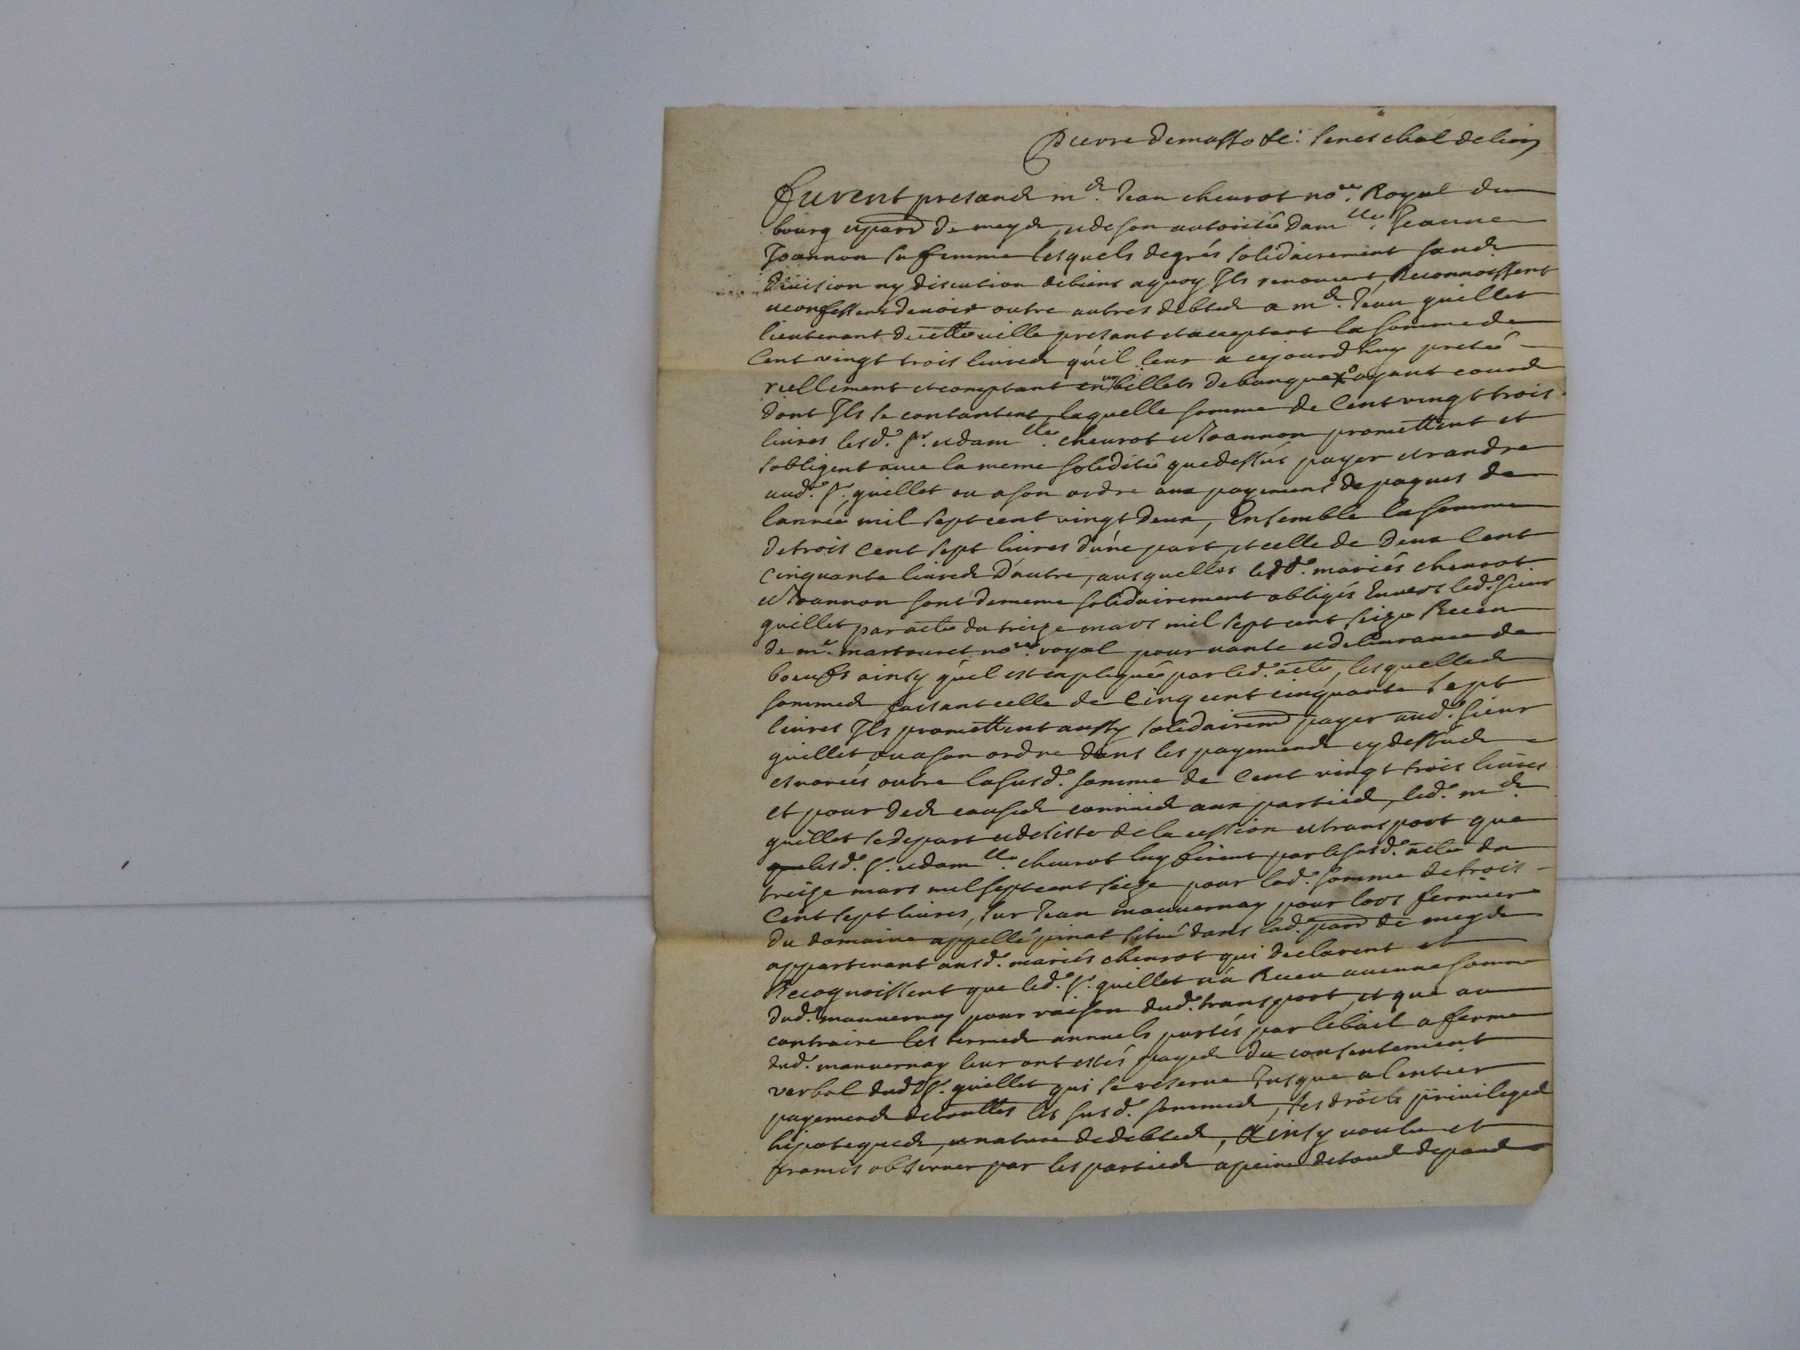 Pierre Demasso &c. seneschal de lion
Furent presend mr. Jean cheurot nore. Royal du
bourg et parr de meyd, et de son autorité dam lle. Jeanne
Joannon sa femme lesquels de grés solidairement sand
division ny discution debiens aquoy Ils renoncent, Reconnoissent
et confessent devoir outre autres debted a mr. Jean guillet
lieutenant de cette ville present et acceptant la somme de
Cent vingt trois livred qu'il leur a cejourd'huy pretéé
réellement et comptant en un billets de banque ayant courd
dont Ils se contantent, laquelle somme de Cent vingt trois
livres lesd. sr. et dam lle. cheurot et Joannon promettent et
sobligent avec la meme solidité que dessus payer et randre
aud. sr. guillet ou a son ordre aux payemens de paques de
l'année mil sept cent vingt deux, Ensemble la somme
de trois Cent sept livres d'une part, et celle de Deux Cent
Cinquante livred D'autre, ausquelles lesd. mariés cheurot
et Joannon sont dememe solidairement obligés Envers led. sieur
guillet par acte du treize mars mil sept cent seize Receu
de me. martouret nore. royal pour vante et delivrance de
boeufs ainsy qu'il est expliqué par led. acte, lesquelled
sommed faisant celle de Cinq cent cinquante sept
livres Ils promettent aussy solidairemt payer aud. sieur
guillet, ou a son ordre dans les payemend cy dessud
et varies outre la susd. somme de Cent vingt trois livres
et pour Ded caused connued aux partied, led. mr.
guillet se depart et desiste de la cession et transport que
que lesd. sr. et dam lle. cheurot luy firent par le susd. acte du
treize mars mil sept cent seize pour lad. somme de trois
Cent sept livres, sur Jean mauvernay pour lors fermier
du domaine appellé pinat situé dans lad. parr de meyd
appartenant ausd. mariés cheurot qui declarent et
Recognoissent que led. sr. guillet n'a Receu aucune somme
dud. mauvernay pour raison dud. transport, et que au
contraire les termed annuels portés par le bail a ferme
dud. mauvernay leur ont estés payed du consentement
verbal dud. sr. guillet qui se reserve Jusque a lentier
payemend de touttes les susd. sommed, ses droits privileged
hipotequed, et nature de debted, Ainsy voulu et
promis observer par les partied a peine de toud depand